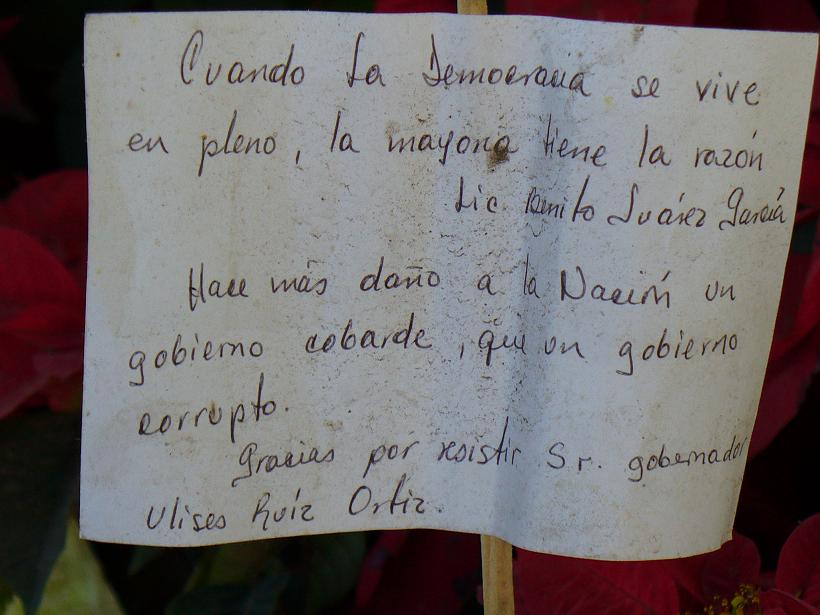 Cuando la Democracia se vive
en pleno, la mayoria tiene la razón
Lic Benito Suárez García
Hace más daño a la Nación un
gobierno cobarde, que un gobierno
corrupto.
Gracias por resistir Sr. gobernador
Ulises Ruíz Ortiz.